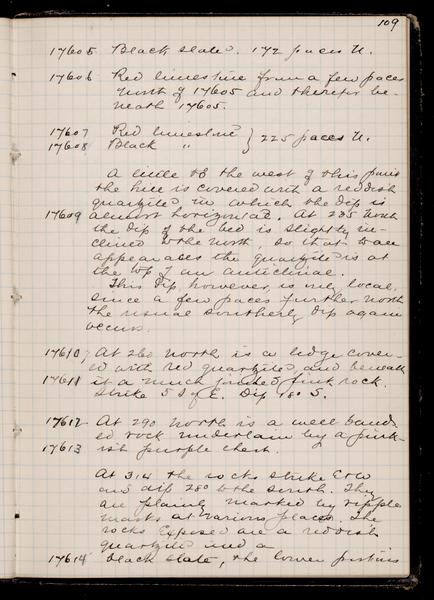 109
17605 Black slate. 172 paces N.
17606 Red limestone from a few paces
north of 17605 and therefor be-
neath 17605.
17607 Red limestone } 225 paces N.
17608 Black "
A little to the west of this point
the hill is covered with a reddish
quartzite in which the dip is
17609 almost horizontal. At 235 north
the dip of the bed is slightly in-
clined to the north, so that to all
appearances the quartzite is at
the top of an anticlinal.
This dip, however, is only local,
since a few paces further north
the usual southerly dip again
occurs.
17610, At 260 north is a ledge cover-
ed with red quartzite, and beneath
17611 it a much jointed pink rock.
Strike 5 S of E. Dip 18° S.
17612 At 290 north is a well band-
ed rock underlain by a pink-
17613 ish purple chert.
At 314 the rocks strike E & W
and dip 28° to the south. They
are plainly marked by ripple
marks at various places. The
rocks exposed are a reddish
quartzite and a
17614 black slate, the lower portions